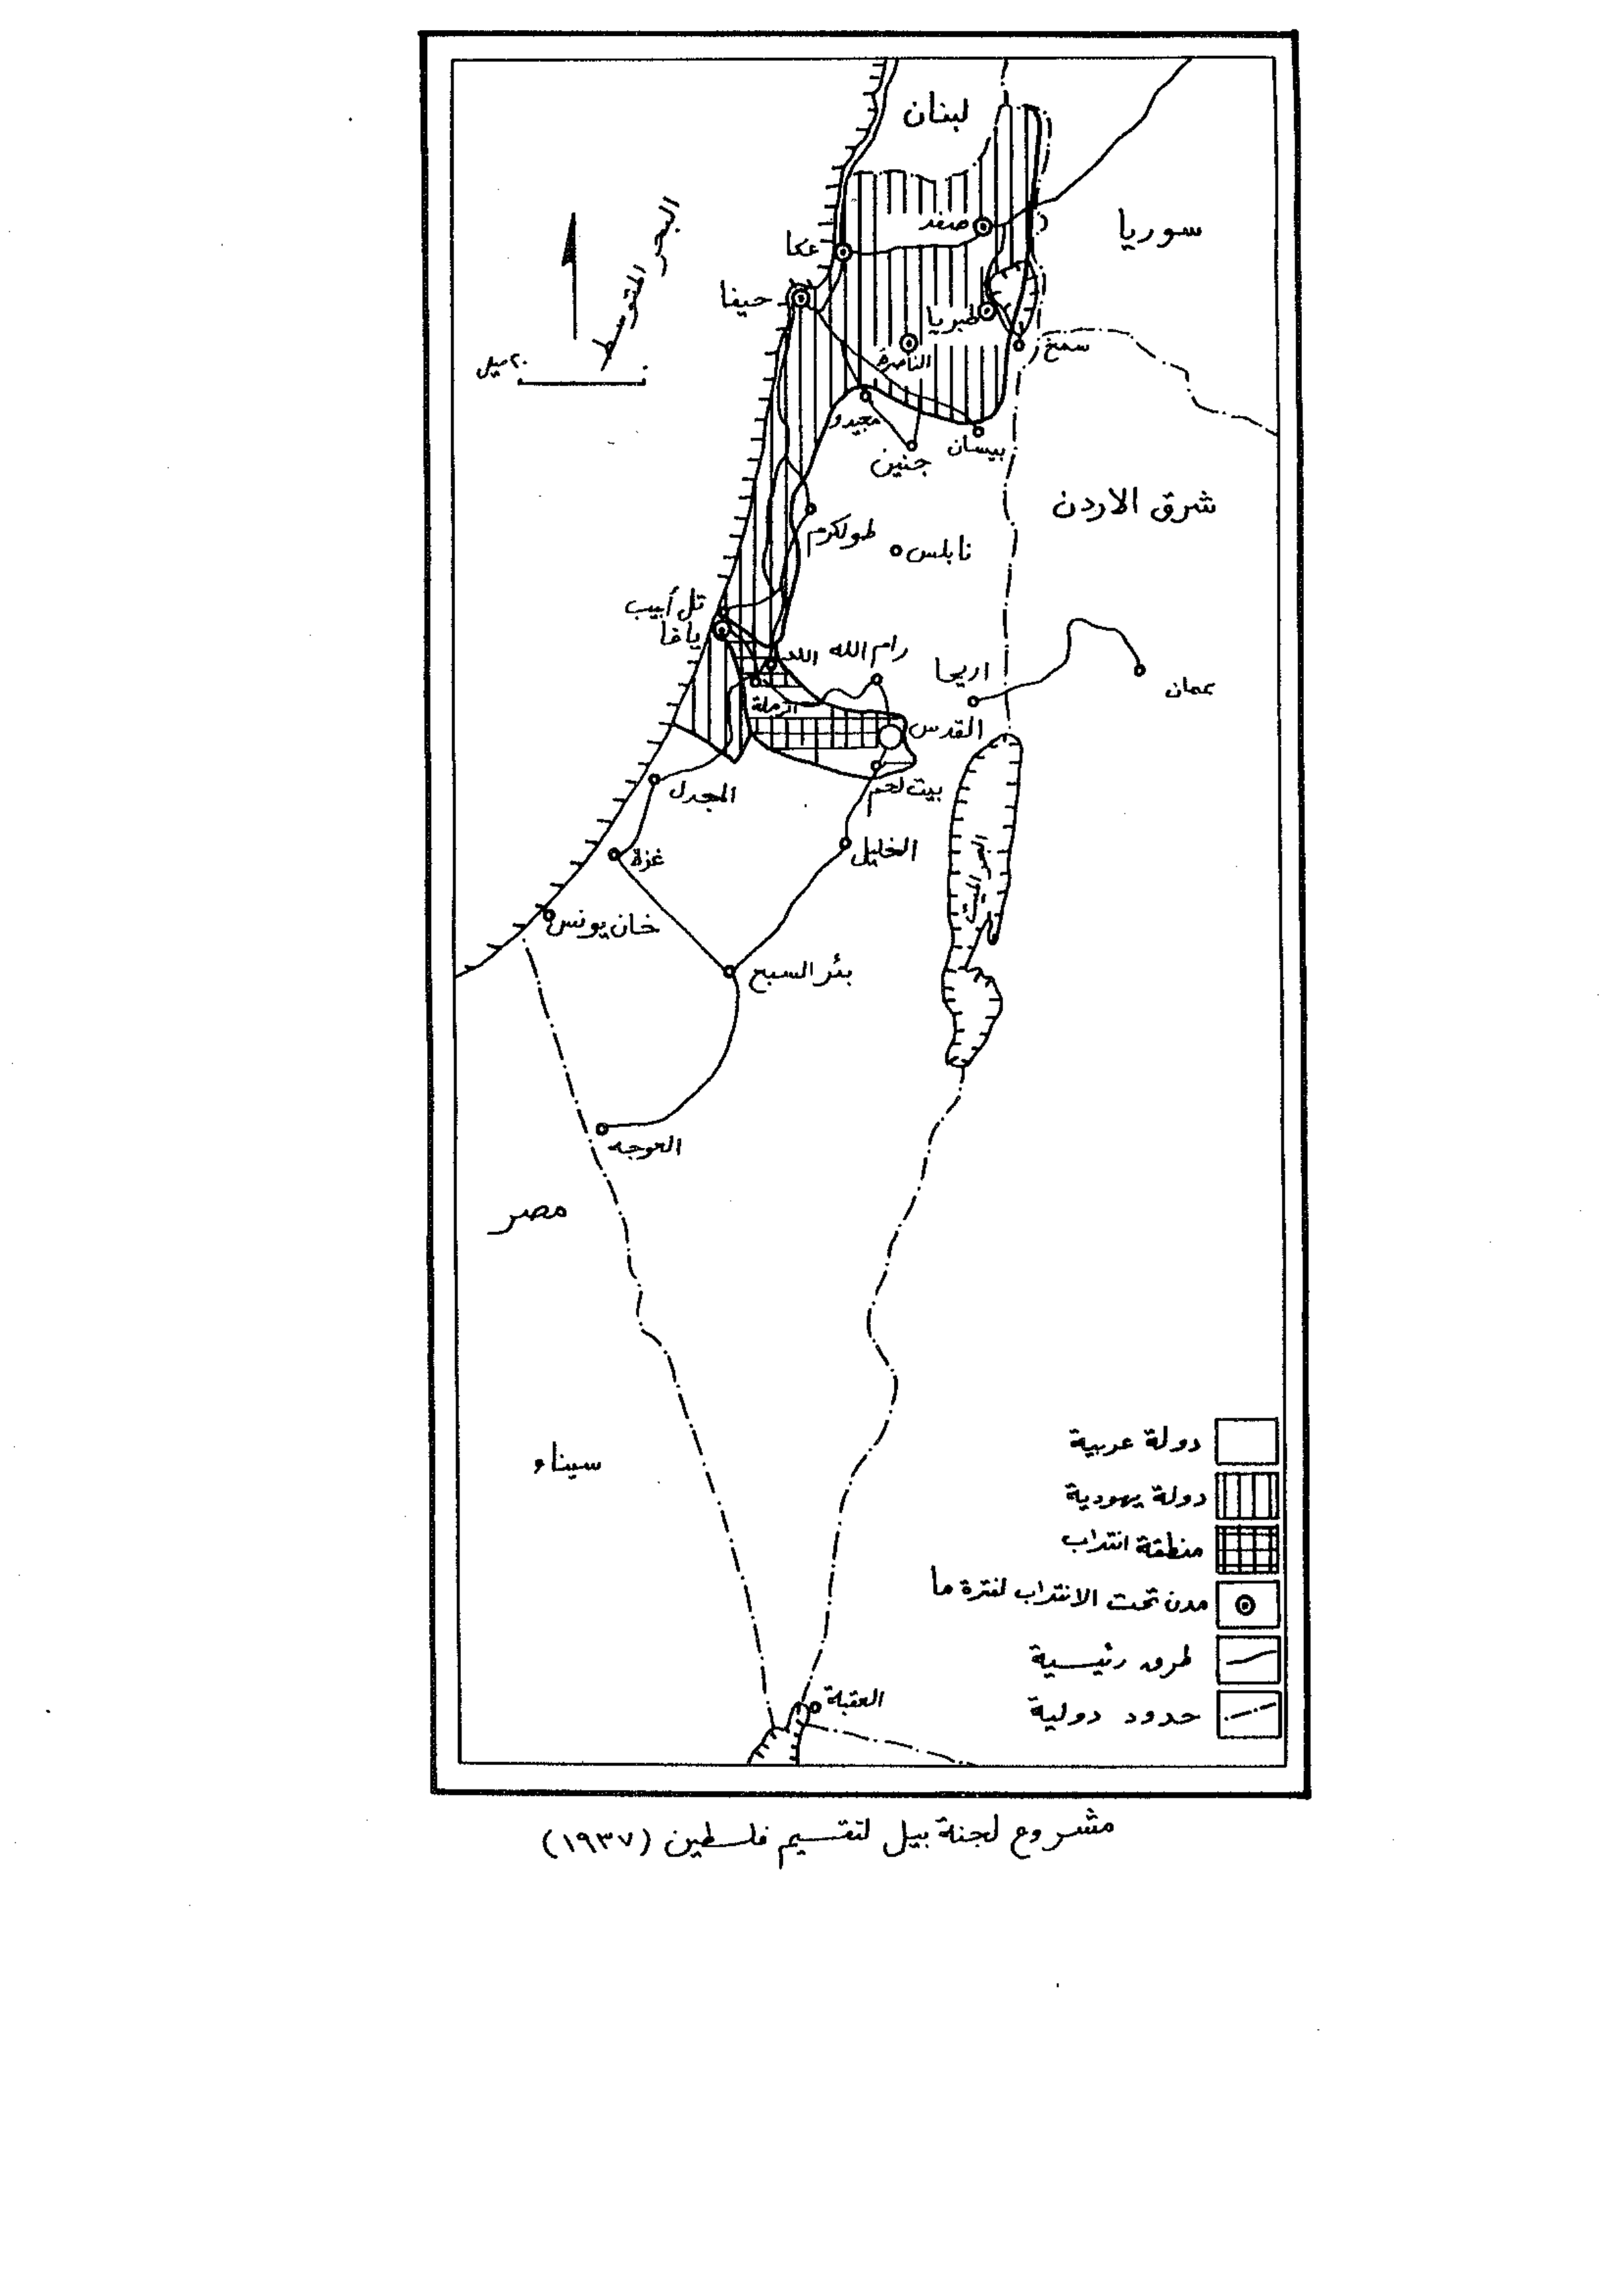 لبنان
سوريا
البحر المتوسط
صفد
عكا
حيفا
طبريا
الناصرة
سمخ
٢٠ ميل
مجيدو
بيسان
جنين
شرق الاردن
طولكرم
نابلس
تل أبيب
يافا
اللد
رام الله
اريحا
عمان
الرملة
القدس
المجدل
بيت لحم
غزة
الخليل
البحر الميت
خان يونس
بئر السبع
العوجه
مصر
سيناء
دولة عربية
دولة يهودية
منطقة انتداب
مدن تحت الانتداب لفترة ما
طرق رئيسية
حدود دولية
العقبة
مشروع لجنة بيل لتقسيم فلسطين (١٩٣٧)